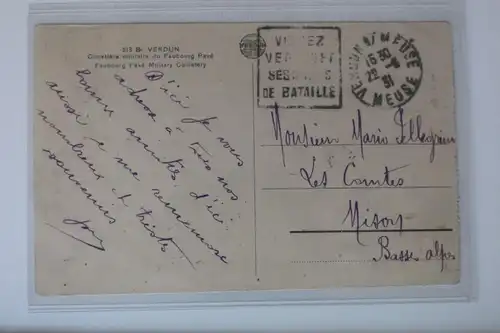 313 Bis VERDUN
Cimetière militaire du Faubourg Pavé
Faubourg Pavé Military Cemetery
VISITEZ
VERDUN ET
SES
DE BATAILLE
VERDUN S/ MEUSE
16 30
22 - 8
31
MEUSE
D'ici je vous
adresse à tous nos
bonnes amitiés. d'ici
aussi je me remémore
nombreux et tristes
souvenirs
Monsieur Mario Pellegrin
Les Comtes
Mison
Basses Alpes